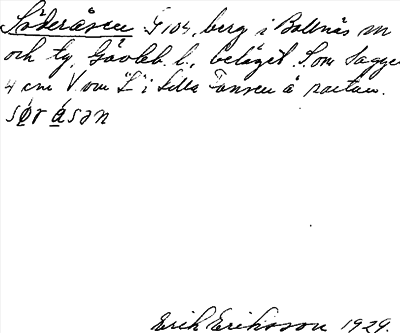 Söderåsen G 104, berg i Bollnäs sn
och tg, Gävleb. l., beläget som ligger
4 cm V om "L" i Lilla Tansen å kartan.
sø̀r ásən
Erik Eriksson 1929.